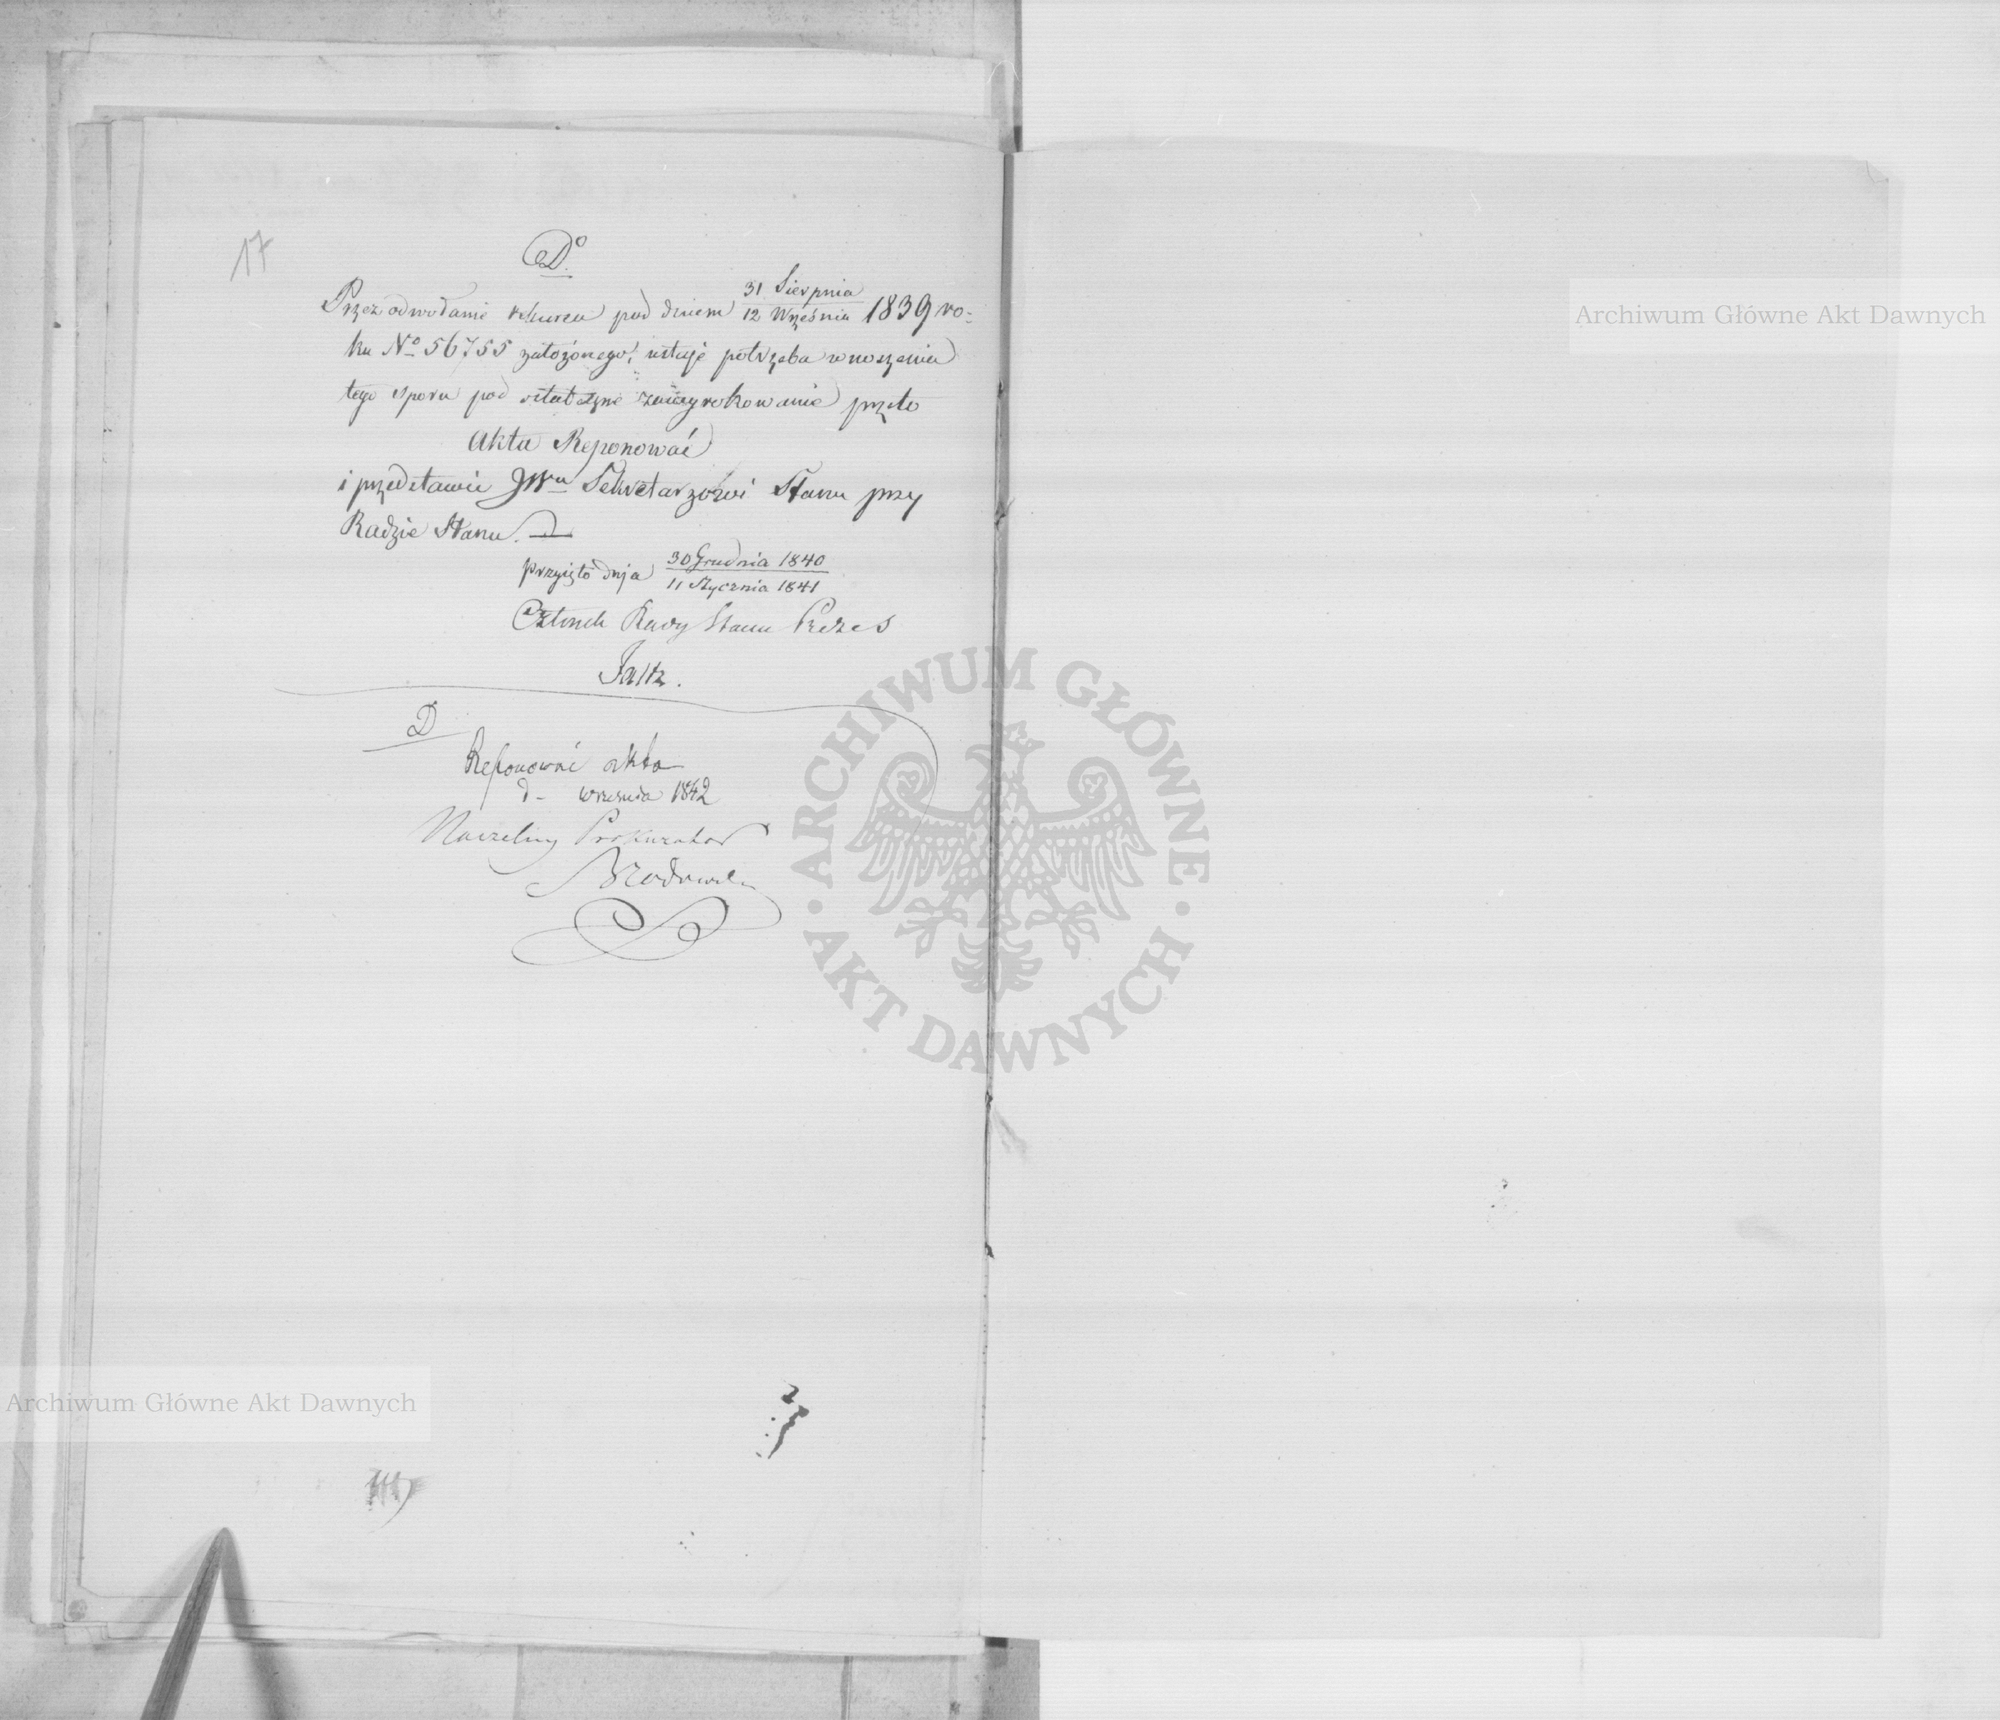 17
Do
Przez odwołanie rekursu pod dniem 31 Sierpnia / 12 Września 1839 ro-
ku No 56755 założonego, ustaje potrzeba wnoszenia
tego sporu pod ostateczne zawyrokowanie przeto
Akta Reponować
i przedstawić JWu Sekretarzowi Stanu przy
Radzie Stanu.
przyięto dnja 30 Grudnia 1840 / 11 Stycznia 1841
Członek Rady Stanu Prezes
D
Reponować akta
d - września 1842
Naczelny Prokurator
Archiwum Główne Akt Dawnych
Archiwum Główne Akt Dawnych
ARCHIWUM GŁÓWNE AKT DAWNYCH